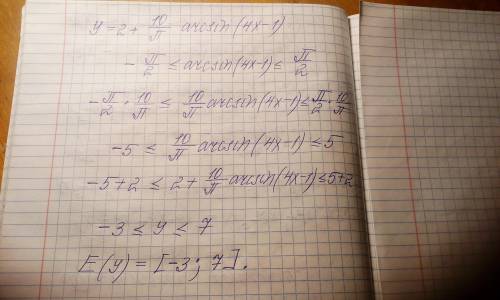 y = 2 + 10/π arcsin(4x-1)
- π/2 ≤ arcsin(4x-1) ≤ π/2
- π/2 · 10/π ≤ 10/π arcsin(4x-1) ≤ π/2 · 10/π
-5 ≤ 10/π arcsin(4x-1) ≤ 5
-5+2 ≤ 2 + 10/π arcsin(4x-1) ≤ 5+2
-3 ≤ y ≤ 7
E(y) = [-3; 7].